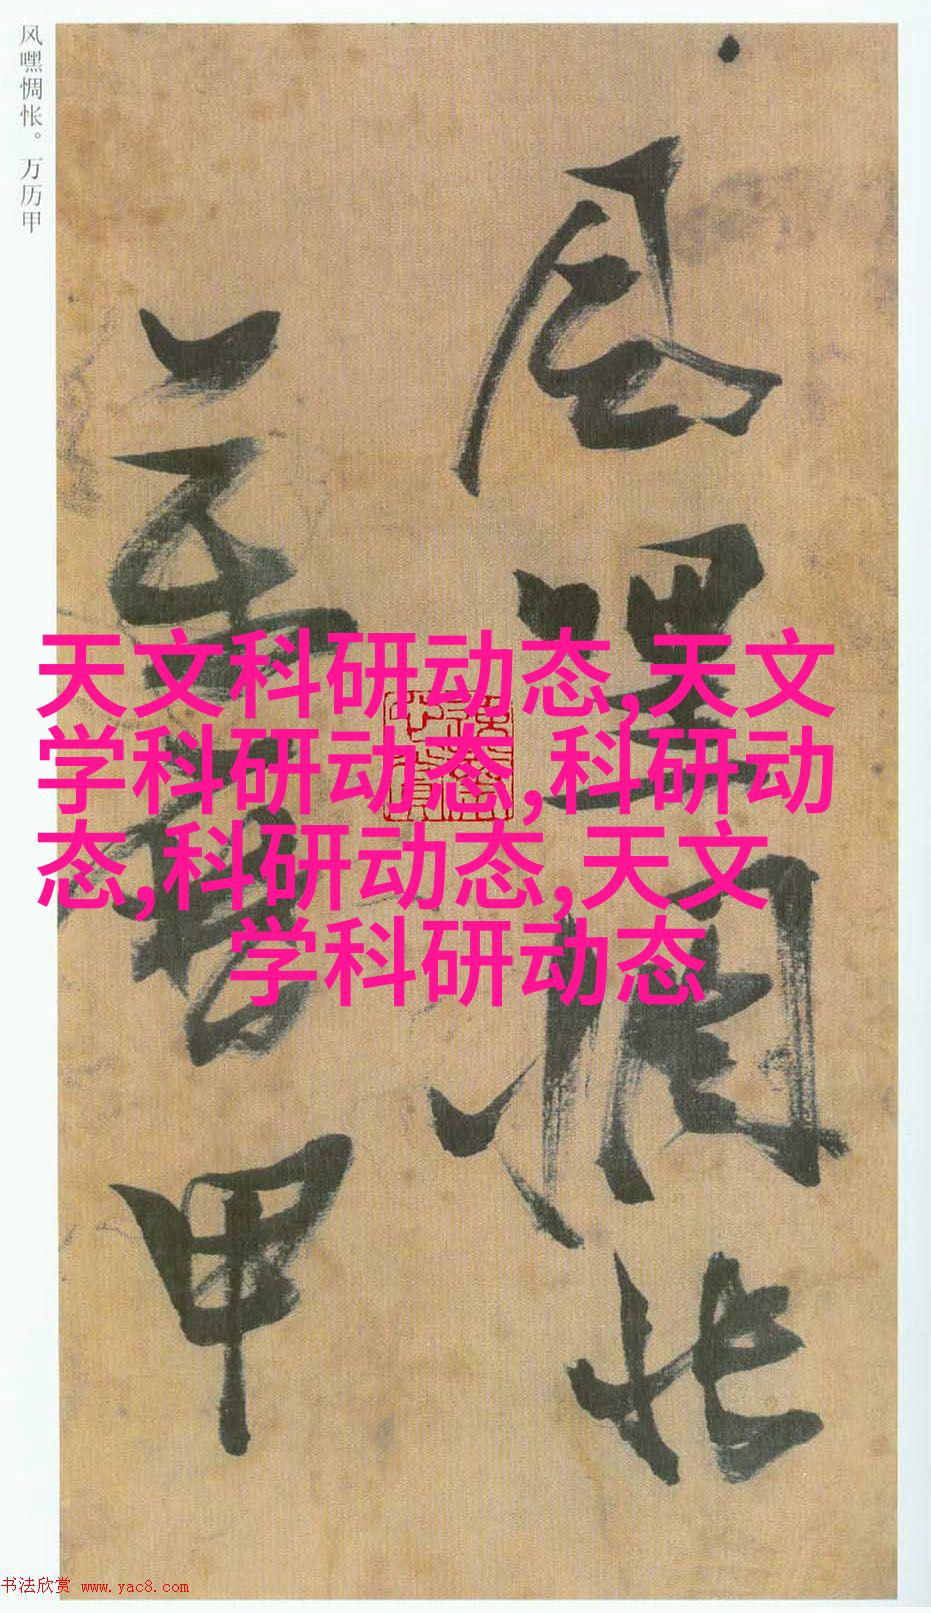 风嘿惆怅。万历甲
风嘿惆
怅
万历甲
天文科研动态,天文
学科研动态,科研动
态,科研动态,天文
学科研动态
书法欣赏 www.yac8.com